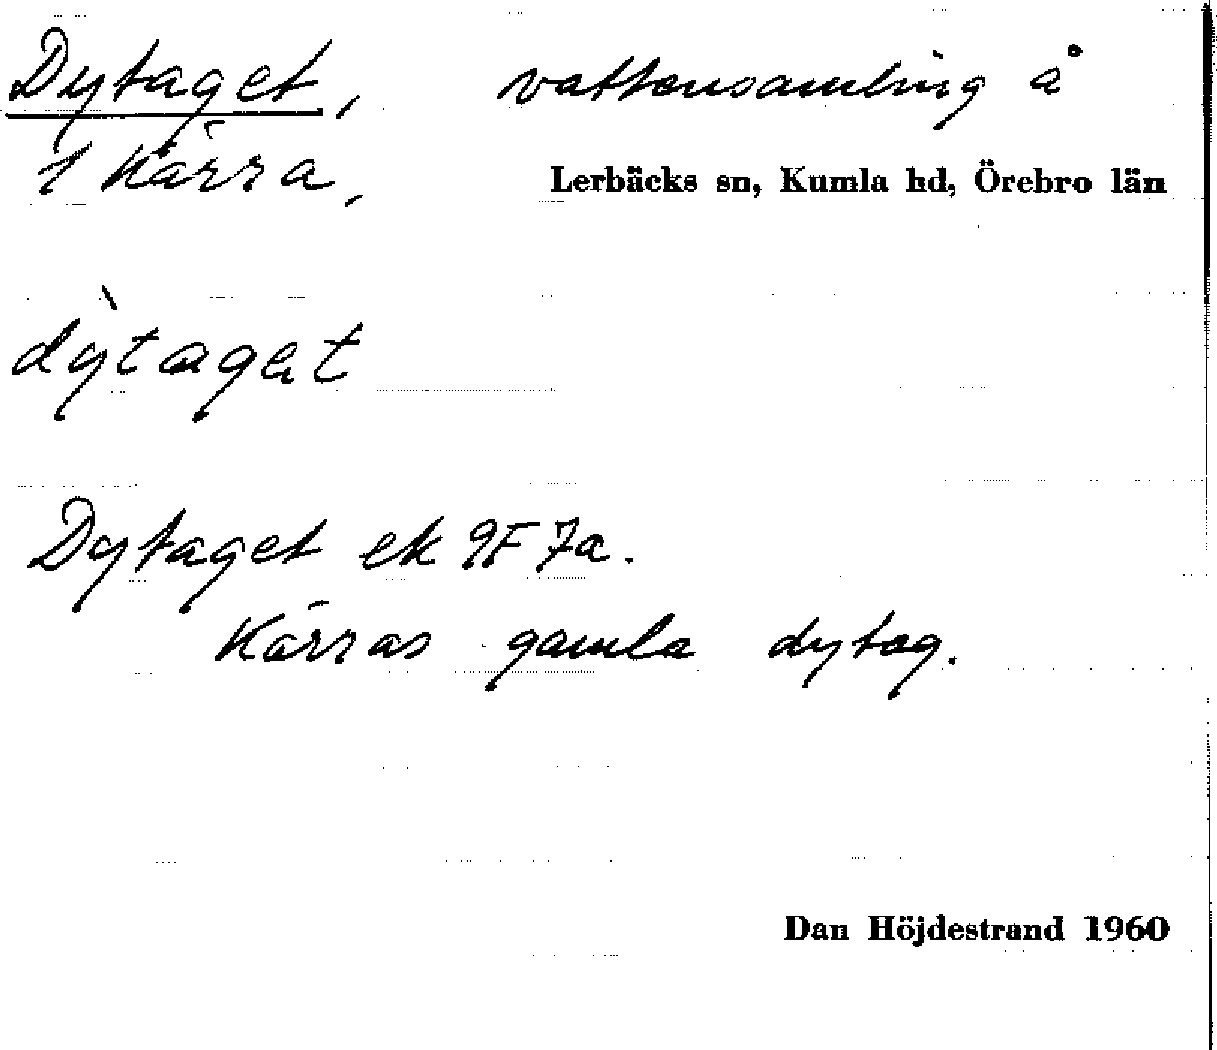 Dytaget, vattensamling å
1 Kärra, Lerbäcks sn, Kumla hd, Örebro län
dỳtaget
Dytaget ek 9F 7a.
Kärras gamla dytag.
Dan Höjdestrand 1960